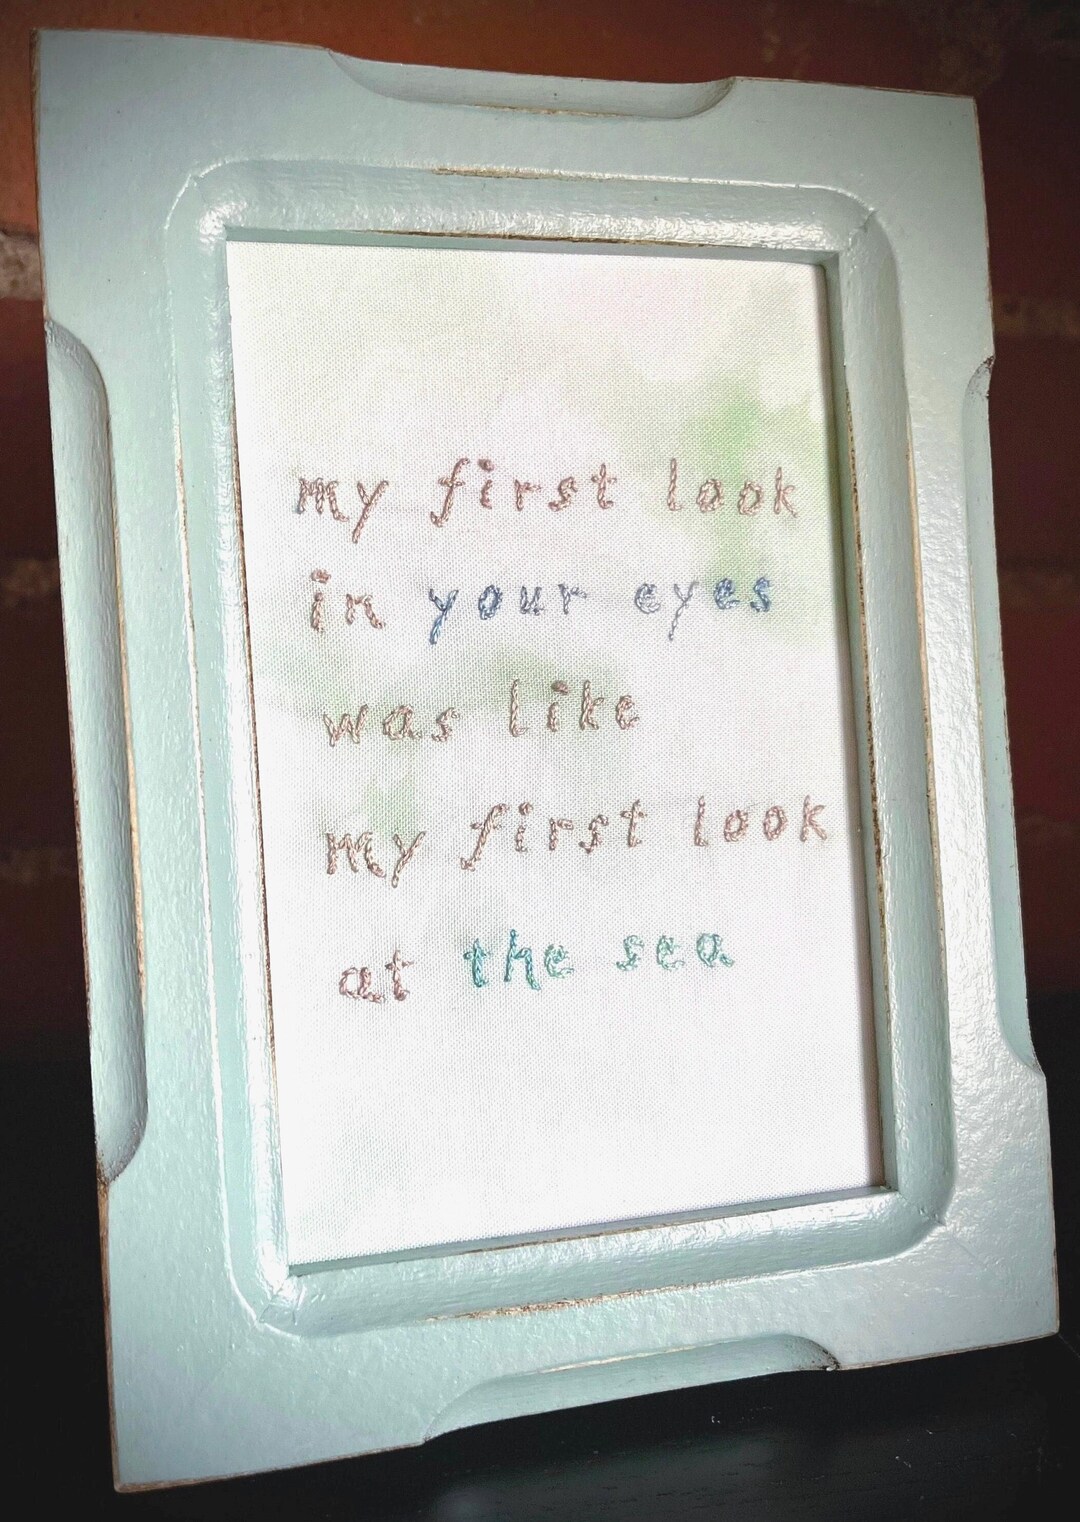 my first look
in your eyes
was like
my first look
at the sea